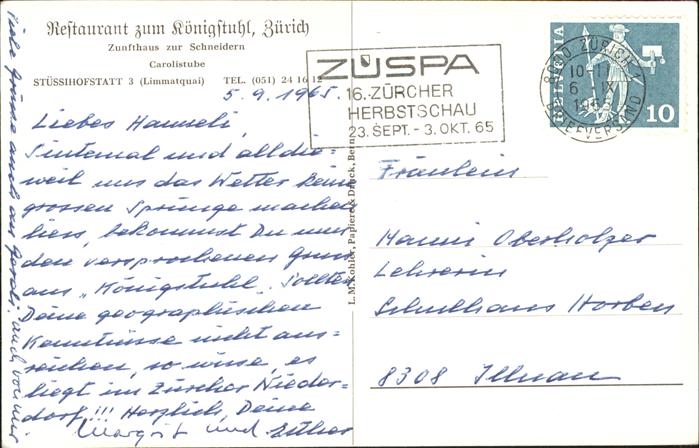 Restaurant zum Königstuhl, Zürich
Zunfthaus zur Schneidern
Carolistube
STÜSSIHOFSTATT 3 (Limmatquai) TEL. (051) 24 16 12
5.9.1965.
Liebes Hanneli,
Sintemal und alldie=
weil uns das Wetter keine
grossen Sprünge machen
liess, bekommst Du nur
den versprochenen Gruss
aus „Königstuhl". Sollten
Deine geographischen
Kenntnisse nicht aus=
reichen, so wisse, es
liegt im Zürcher Nieder=
dorf!!! Herzlich, Deine
Margrit und Esther
Viele Grüsse auch an Gerdi, auch von mir
L. M. Kohler, Papier & Druck, Bern
ZÜSPA
16. ZÜRCHER
HERBSTSCHAU
23. SEPT. - 3. OKT. 65
8000 ZÜRICH 1
10-11
6 IX
1965
BRIEFVERSAND
HELVETIA
10
Fräulein
Hanni Oberholzer
Lehrerin
Schulhaus Horben
8308 Illnau